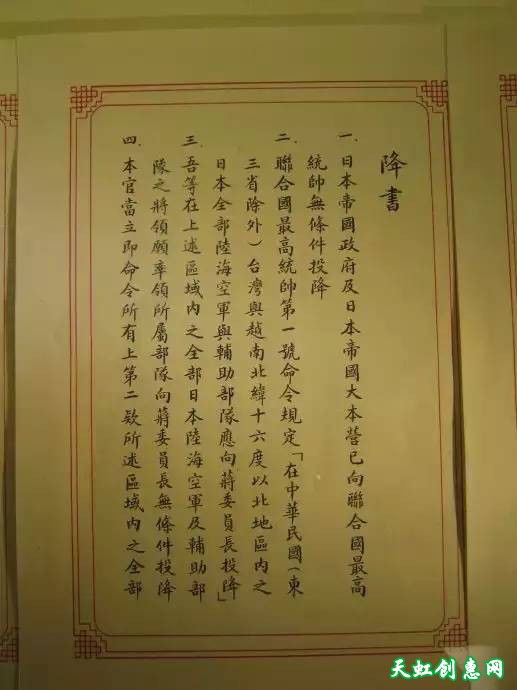 降書
一. 日本帝國政府及日本帝國大本營已向聯合國最高
統帥無條件投降
二. 聯合國最高統帥第一號命令規定「在中華民國(東
三省除外)台灣與越南北緯十六度以北地區内之
日本全部陸海空軍與輔助部隊應向蔣委員長投降」
三. 吾等在上述區域内之全部日本陸海空軍及輔助部
隊之將領願率領所屬部隊向蔣委員長無條件投降
四. 本官當立即命令所有上第二欵所述區域内之全部
天虹创惠网